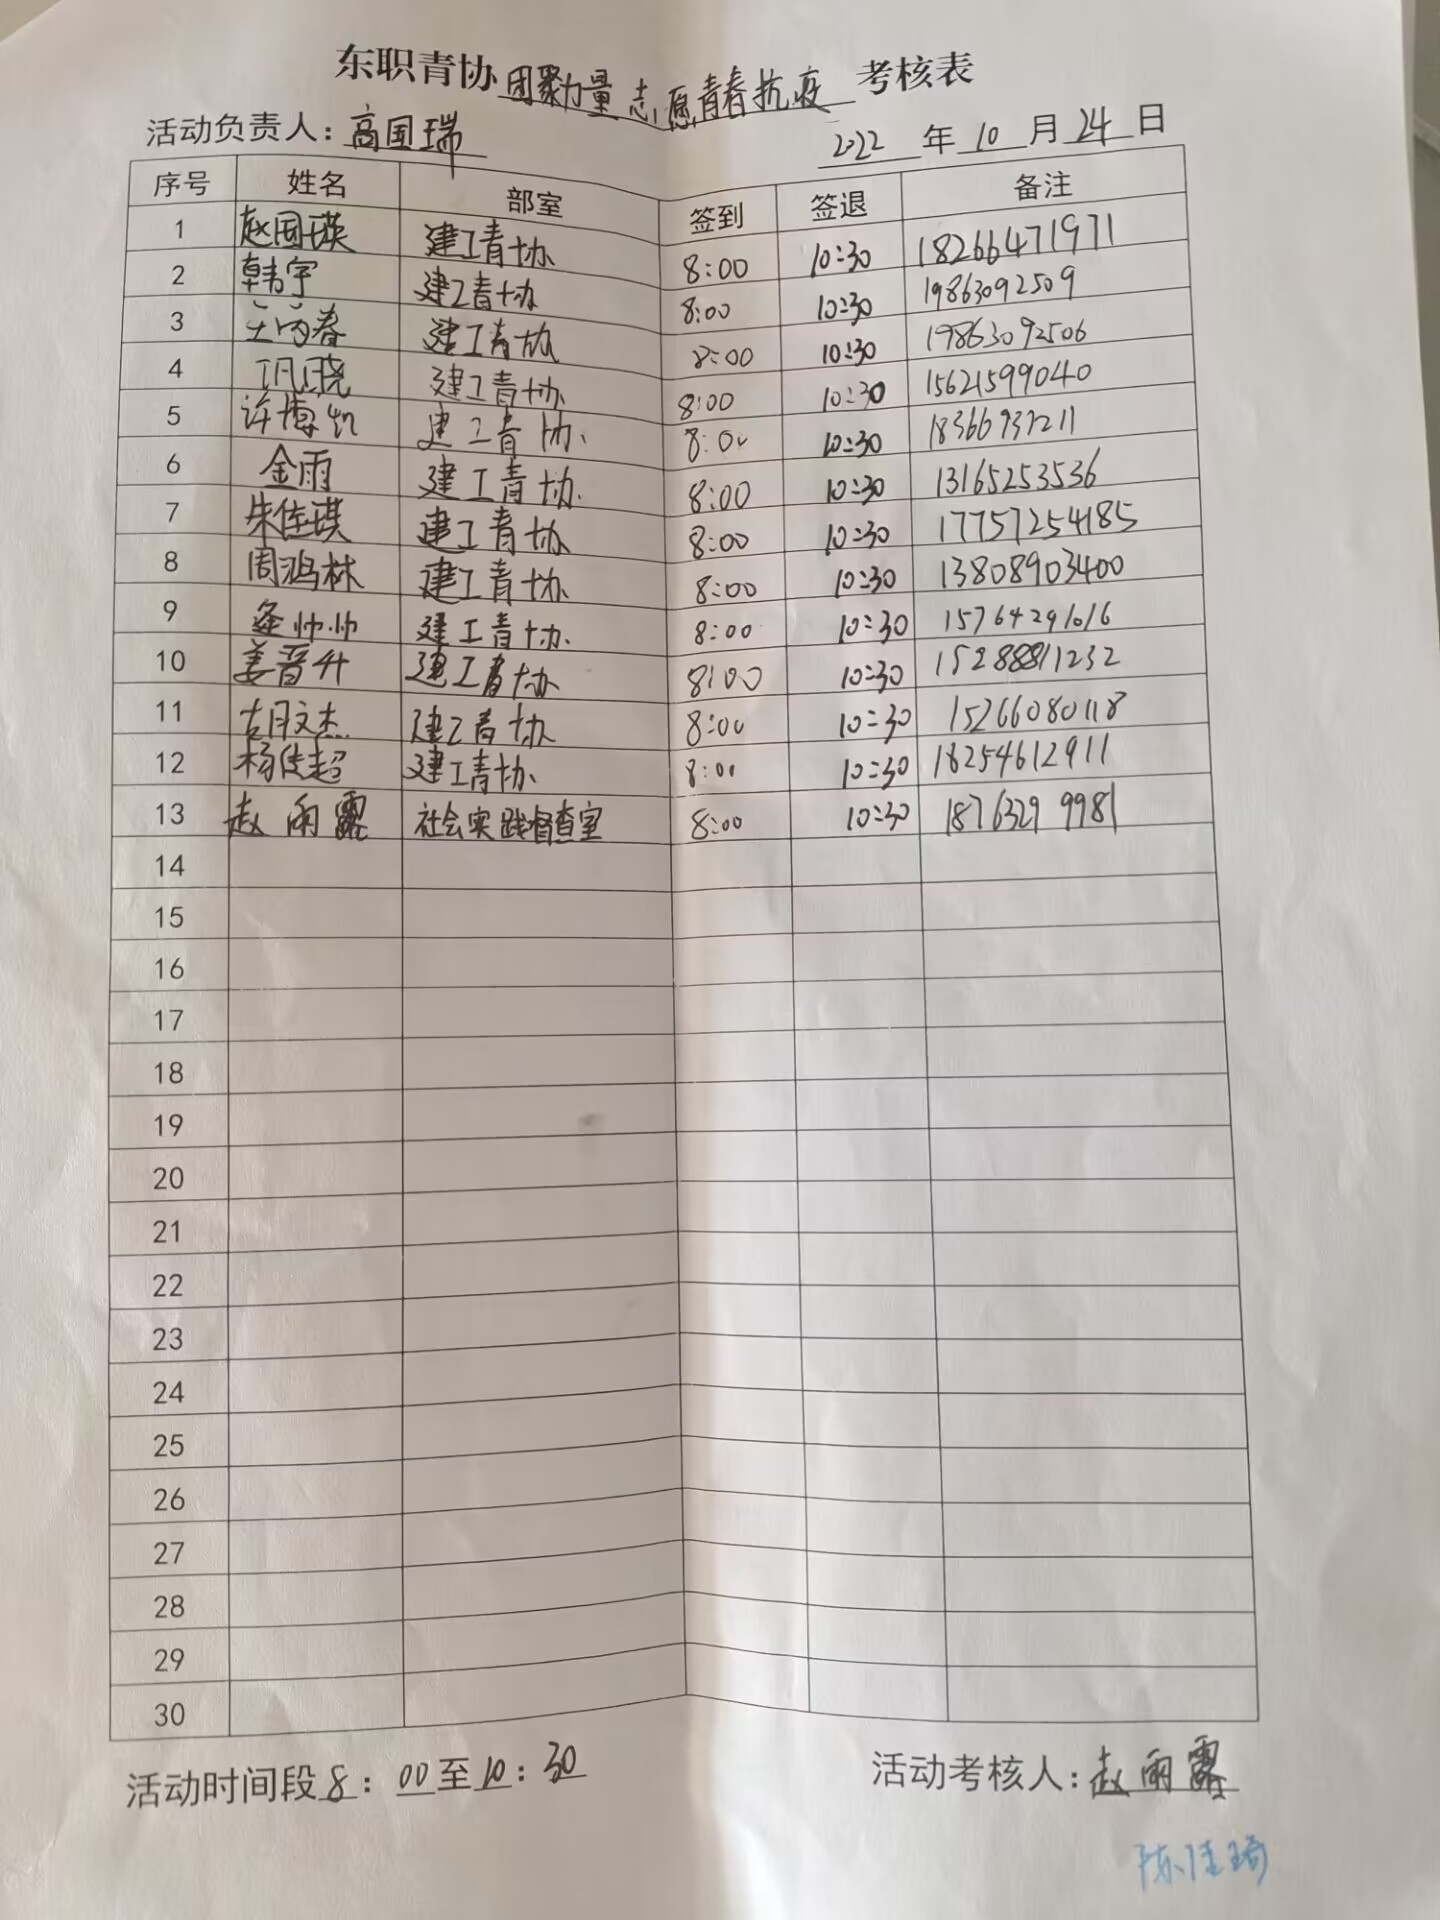 东职青协团聚力量 志愿青春抗疫 考核表
活动负责人：高国瑞 2022 年 10 月 24 日
序号 姓名 部室 签到 签退 备注
1 赵国瑛 建工青协 8:00 10:30 18266471971
2 韩宇 建工青协 8:00 10:30 19863092509
3 建工青协 8:00 10:30 19863092506
4 建工青协 8:00 10:30 15621599040
5 许博凯 建工青协 8:00 10:30
6 金雨 建工青协 8:00 10:30 13165253536
7 朱佳琪 建工青协 8:00 10:30 17757254185
8 周鸿林 建工青协 8:00 10:30 13808903400
9 建工青协 8:00 10:30 15764291016
10 姜晋升 建工青协 8:00 10:30 15288811232
11 胡文杰 建工青协 8:00 10:30 15266080118
12 建工青协 8:00 10:30 18254612911
13 赵雨露 社会实践督查室 8:00 10:30 1876329 9981
14
15
16
17
18
19
20
21
22
23
24
25
26
27
28
29
30
活动时间段8：00至10：30 活动考核人：赵雨露
陈佳琦